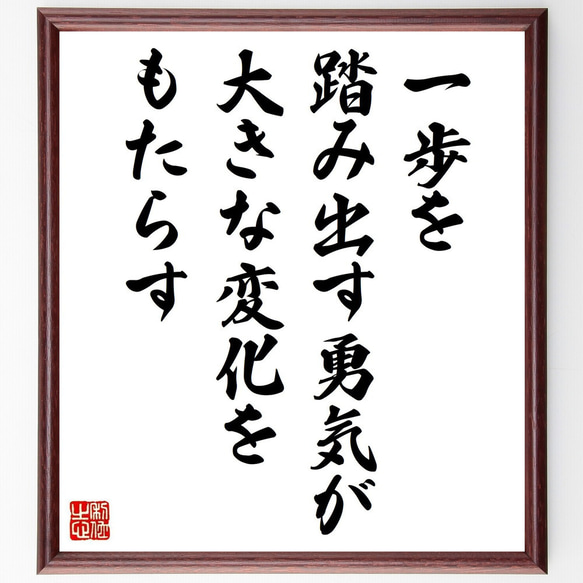 一歩を
踏み出す勇気が
大きな変化を
もたらす